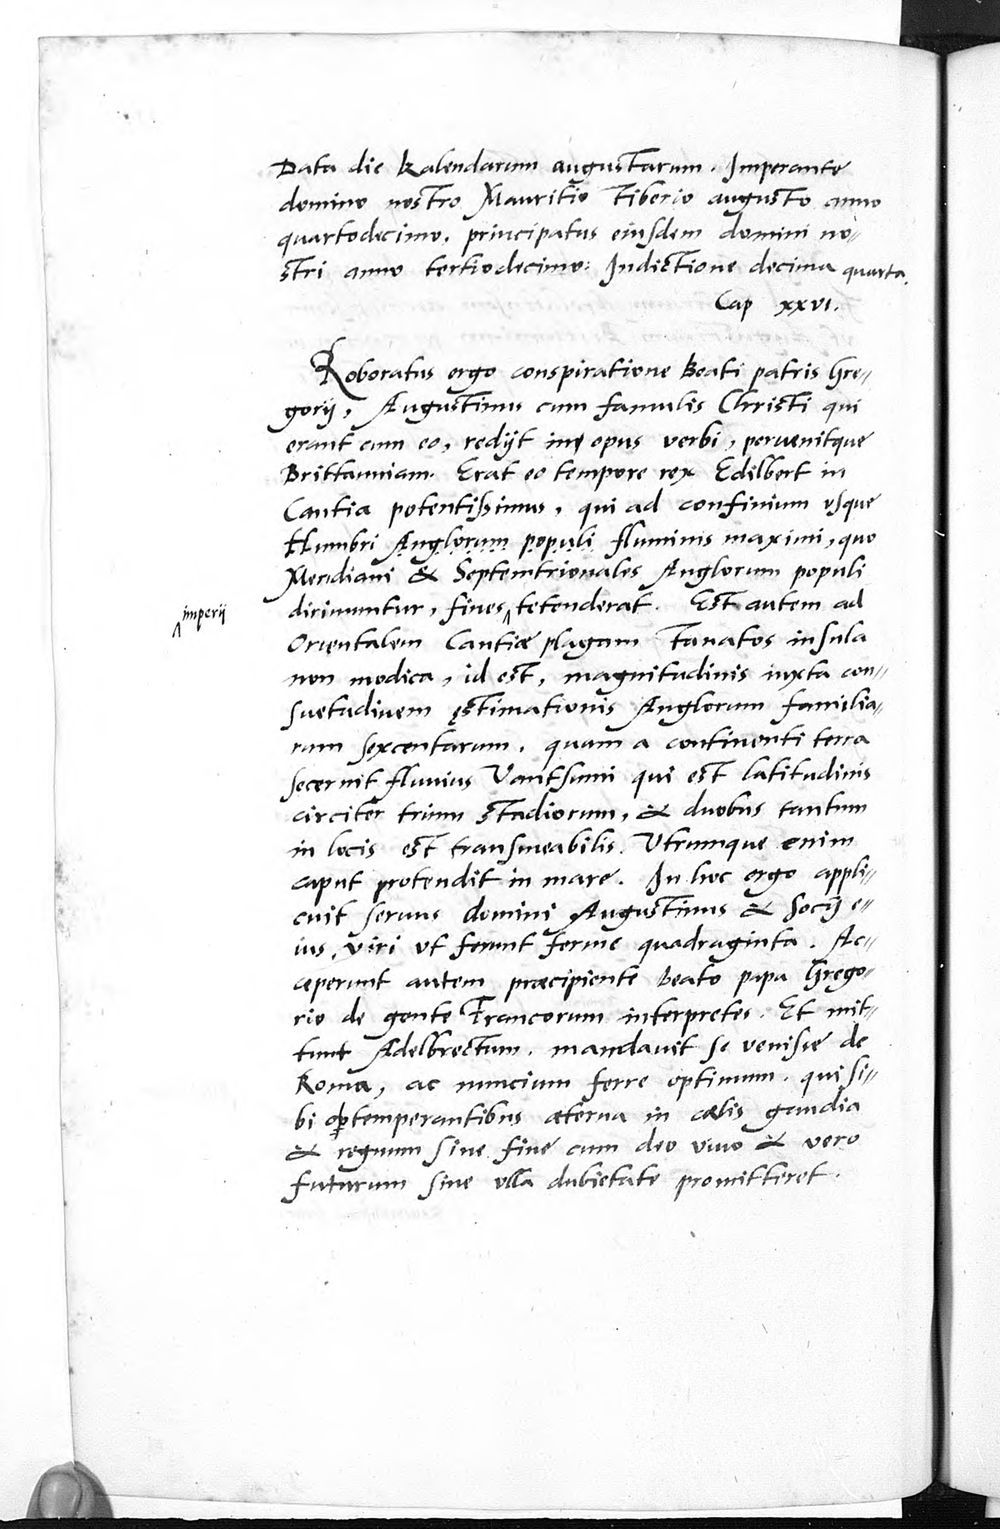 Data die Kalendarum augustarum. Imperante
domino nostro Mauritio Tiberio augusto anno
quartodecimo, principatus eiusdem domini no-
stri anno tertiodecimo: Indictione decima quarta.
Cap xxvi.
Roboratus ergo conspiratione Beati patris Gre-
gorij, Augustinus cum famulis Christi qui
erant cum eo, redijt in opus verbi, peruenitque
Brittanniam. Erat eo tempore rex Edilbert in
Cantia potentissimus, qui ad confinium usque
Humbri Anglorum populi fluminis maximi, quo
Meridiani & Septemtrionales Anglorum populi
dirimuntur, fines ^ tetenderat. Est autem ad
^ imperij
Orientalem Cantiæ plagam Tanatos insula
non modica, id est, magnitudinis iuxta con-
suetudinem ęstimationis Anglorum familia-
rum sexcentarum, quam a continenti terra
secernit fluvius Vantsumi qui est latitudinis
circiter trium stadiorum, & duobus tantum
in locis est transmeabilis. Vtrumque enim
caput protendit in mare. In hoc ergo appli-
cuit seruus domini Augustinus & socij e-
ius, viri vt ferunt ferme quadraginta. Ac-
ceperunt autem præcipiente beato papa Grego-
rio de gente Francorum interpretes. Et mit-
tunt Adelbrectum. mandauit se venisse de
Roma, ac nuncium ferre optimum. qui si-
bi optemperantibus æterna in cælis gaudia
& regnum sine fine cum deo viuo & vero
futurum sine ulla dubietate promitteret.